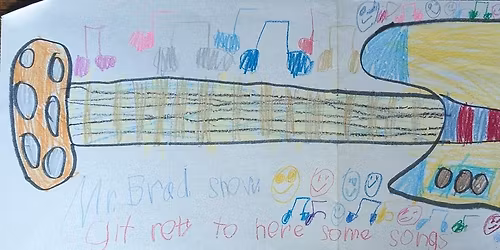 Mr. Brad snow
Git redy to here some songs